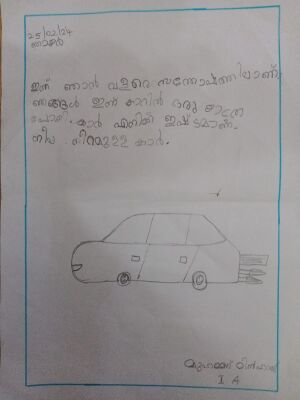 25/02/24
ഞായർ
ഇന്ന് ഞാൻ വളരെ സന്തോഷത്തിലാണ്.
ഞങ്ങൾ ഇന്ന് കാറിൽ ഒരു യാത്ര
പോയി. കാർ എനിക്ക് ഇഷ്ടമാണ്.
നീല നിറമുള്ള കാർ.
മുഹമ്മദ്
I A